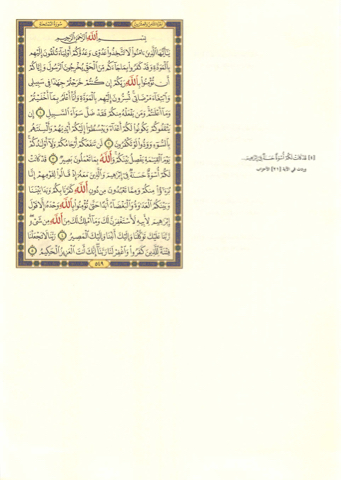 سورة الممتحنة
بِسْمِ اللَّهِ الرَّحْمَٰنِ الرَّحِيمِ
يَا أَيُّهَا الَّذِينَ آمَنُوا لَا تَتَّخِذُوا عَدُوِّي وَعَدُوَّكُمْ أَوْلِيَاءَ تُلْقُونَ إِلَيْهِم
بِالْمَوَدَّةِ وَقَدْ كَفَرُوا بِمَا جَاءَكُم مِّنَ الْحَقِّ يُخْرِجُونَ الرَّسُولَ وَإِيَّاكُمْ
أَن تُؤْمِنُوا بِاللَّهِ رَبِّكُمْ إِن كُنتُمْ خَرَجْتُمْ جِهَادًا فِي سَبِيلِي
وَابْتِغَاءَ مَرْضَاتِي تُسِرُّونَ إِلَيْهِم بِالْمَوَدَّةِ وَأَنَا أَعْلَمُ بِمَا أَخْفَيْتُمْ
وَمَا أَعْلَنتُمْ وَمَن يَفْعَلْهُ مِنكُمْ فَقَدْ ضَلَّ سَوَاءَ السَّبِيلِ ١ إِن
يَثْقَفُوكُمْ يَكُونُوا لَكُمْ أَعْدَاءً وَيَبْسُطُوا إِلَيْكُمْ أَيْدِيَهُمْ وَأَلْسِنَتَهُم
بِالسُّوءِ وَوَدُّوا لَوْ تَكْفُرُونَ ٢ لَن تَنفَعَكُمْ أَرْحَامُكُمْ وَلَا أَوْلَادُكُمْ
يَوْمَ الْقِيَامَةِ يَفْصِلُ بَيْنَكُمْ وَاللَّهُ بِمَا تَعْمَلُونَ بَصِيرٌ ٣ قَدْ كَانَتْ
لَكُمْ أُسْوَةٌ حَسَنَةٌ فِي إِبْرَاهِيمَ وَالَّذِينَ مَعَهُ إِذْ قَالُوا لِقَوْمِهِمْ إِنَّا
بُرَآءُ مِنكُمْ وَمِمَّا تَعْبُدُونَ مِن دُونِ اللَّهِ كَفَرْنَا بِكُمْ وَبَدَا بَيْنَنَا
وَبَيْنَكُمُ الْعَدَاوَةُ وَالْبَغْضَاءُ أَبَدًا حَتَّىٰ تُؤْمِنُوا بِاللَّهِ وَحْدَهُ إِلَّا قَوْلَ
إِبْرَاهِيمَ لِأَبِيهِ لَأَسْتَغْفِرَنَّ لَكَ وَمَا أَمْلِكُ لَكَ مِنَ اللَّهِ مِن شَيْءٍ
رَّبَّنَا عَلَيْكَ تَوَكَّلْنَا وَإِلَيْكَ أَنَبْنَا وَإِلَيْكَ الْمَصِيرُ ٤ رَبَّنَا لَا تَجْعَلْنَا
فِتْنَةً لِّلَّذِينَ كَفَرُوا وَاغْفِرْ لَنَا رَبَّنَا إِنَّكَ أَنتَ الْعَزِيزُ الْحَكِيمُ ٥
٥٤٩
[٤] قَدْ كَانَتْ لَكُمْ أُسْوَةٌ حَسَنَةٌ فِي إِبْرَاهِيمَ
الأحزاب